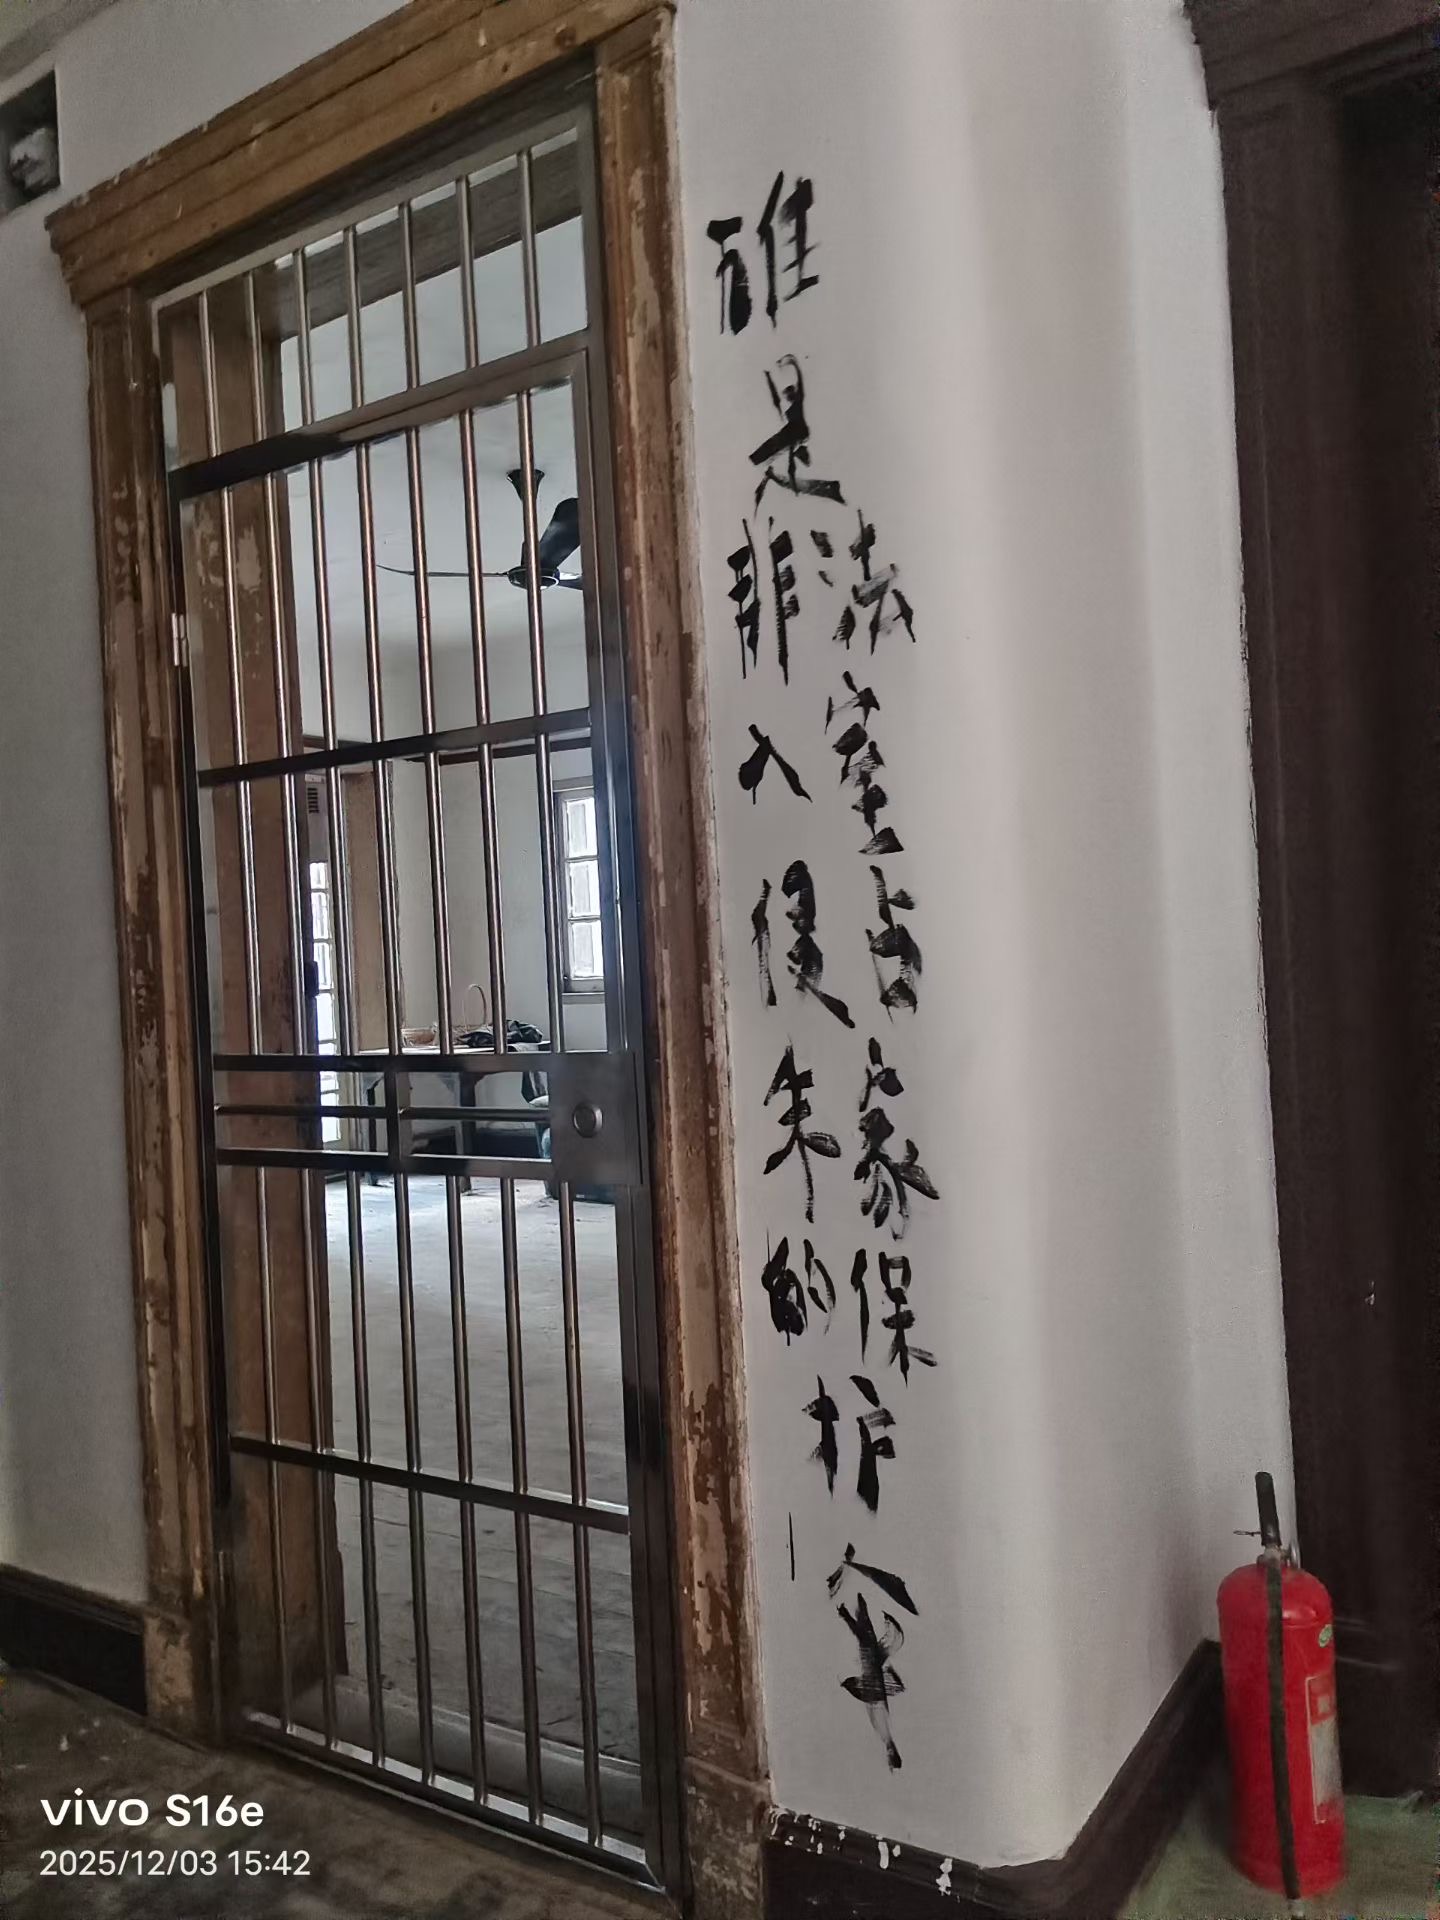 誰是非法入室侵占朱家的保护伞
vivo S16e
2025/12/03 15:42